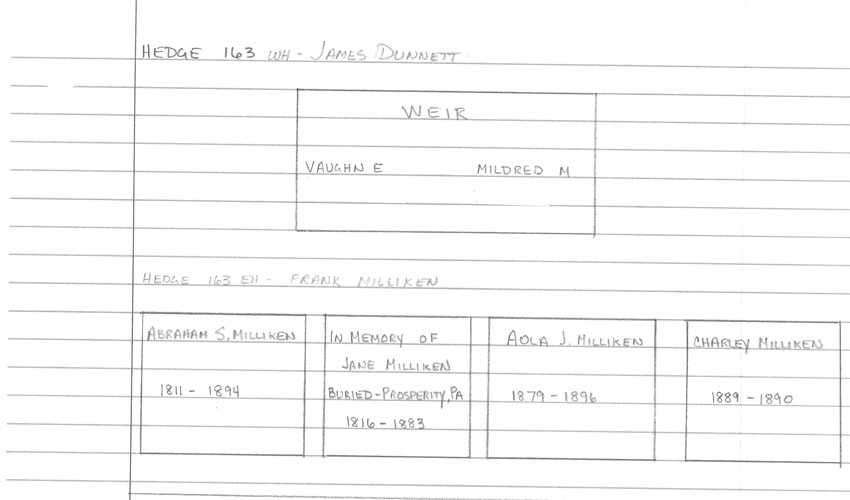 HEDGE 163 WH - JAMES DUNNETT
WEIR
VAUGHN E MILDRED M
HEDGE 163 EH - FRANK MILLIKEN
ABRAHAM S. MILLIKEN
1811 - 1894
IN MEMORY OF
JANE MILLIKEN
BURIED - PROSPERITY, PA
1816 - 1883
AOLA J. MILLIKEN
1879 - 1896
CHARLEY MILLIKEN
1889 - 1890